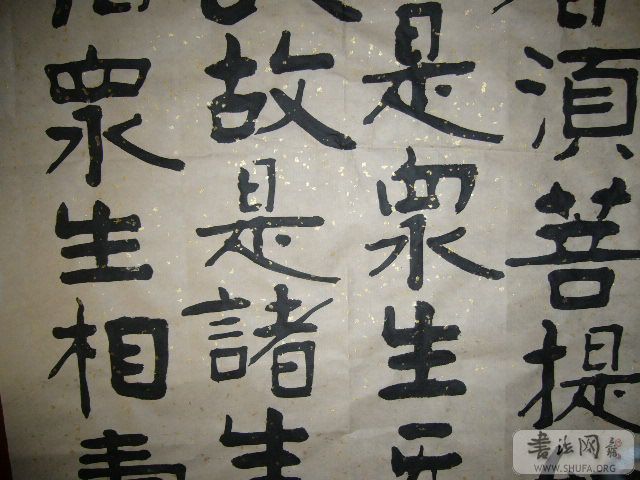 須菩提
是眾生无
故是諸生
眾生相壽
書法网
WWW.SHUFA.ORG